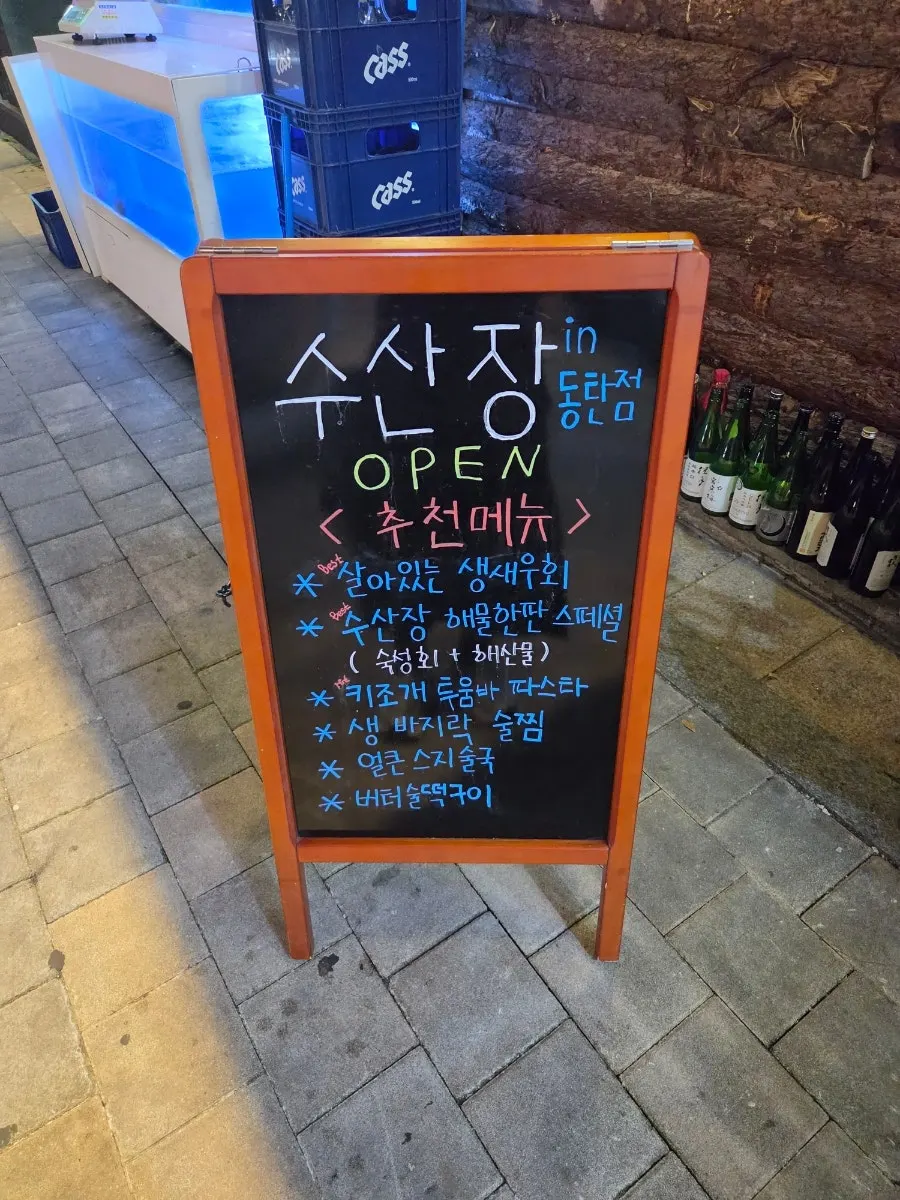 Cass
Cass
Cass
Cass
수산장 in
동탄점
OPEN
< 추천메뉴 >
* Best 살아있는 생새우회
* Best 수산장 해물한판 스페셜
( 숙성회 + 해산물 )
* 키조개 투움바 파스타
* 생 바지락 술찜
* 얼큰 스지술국
* 버터술떡구이